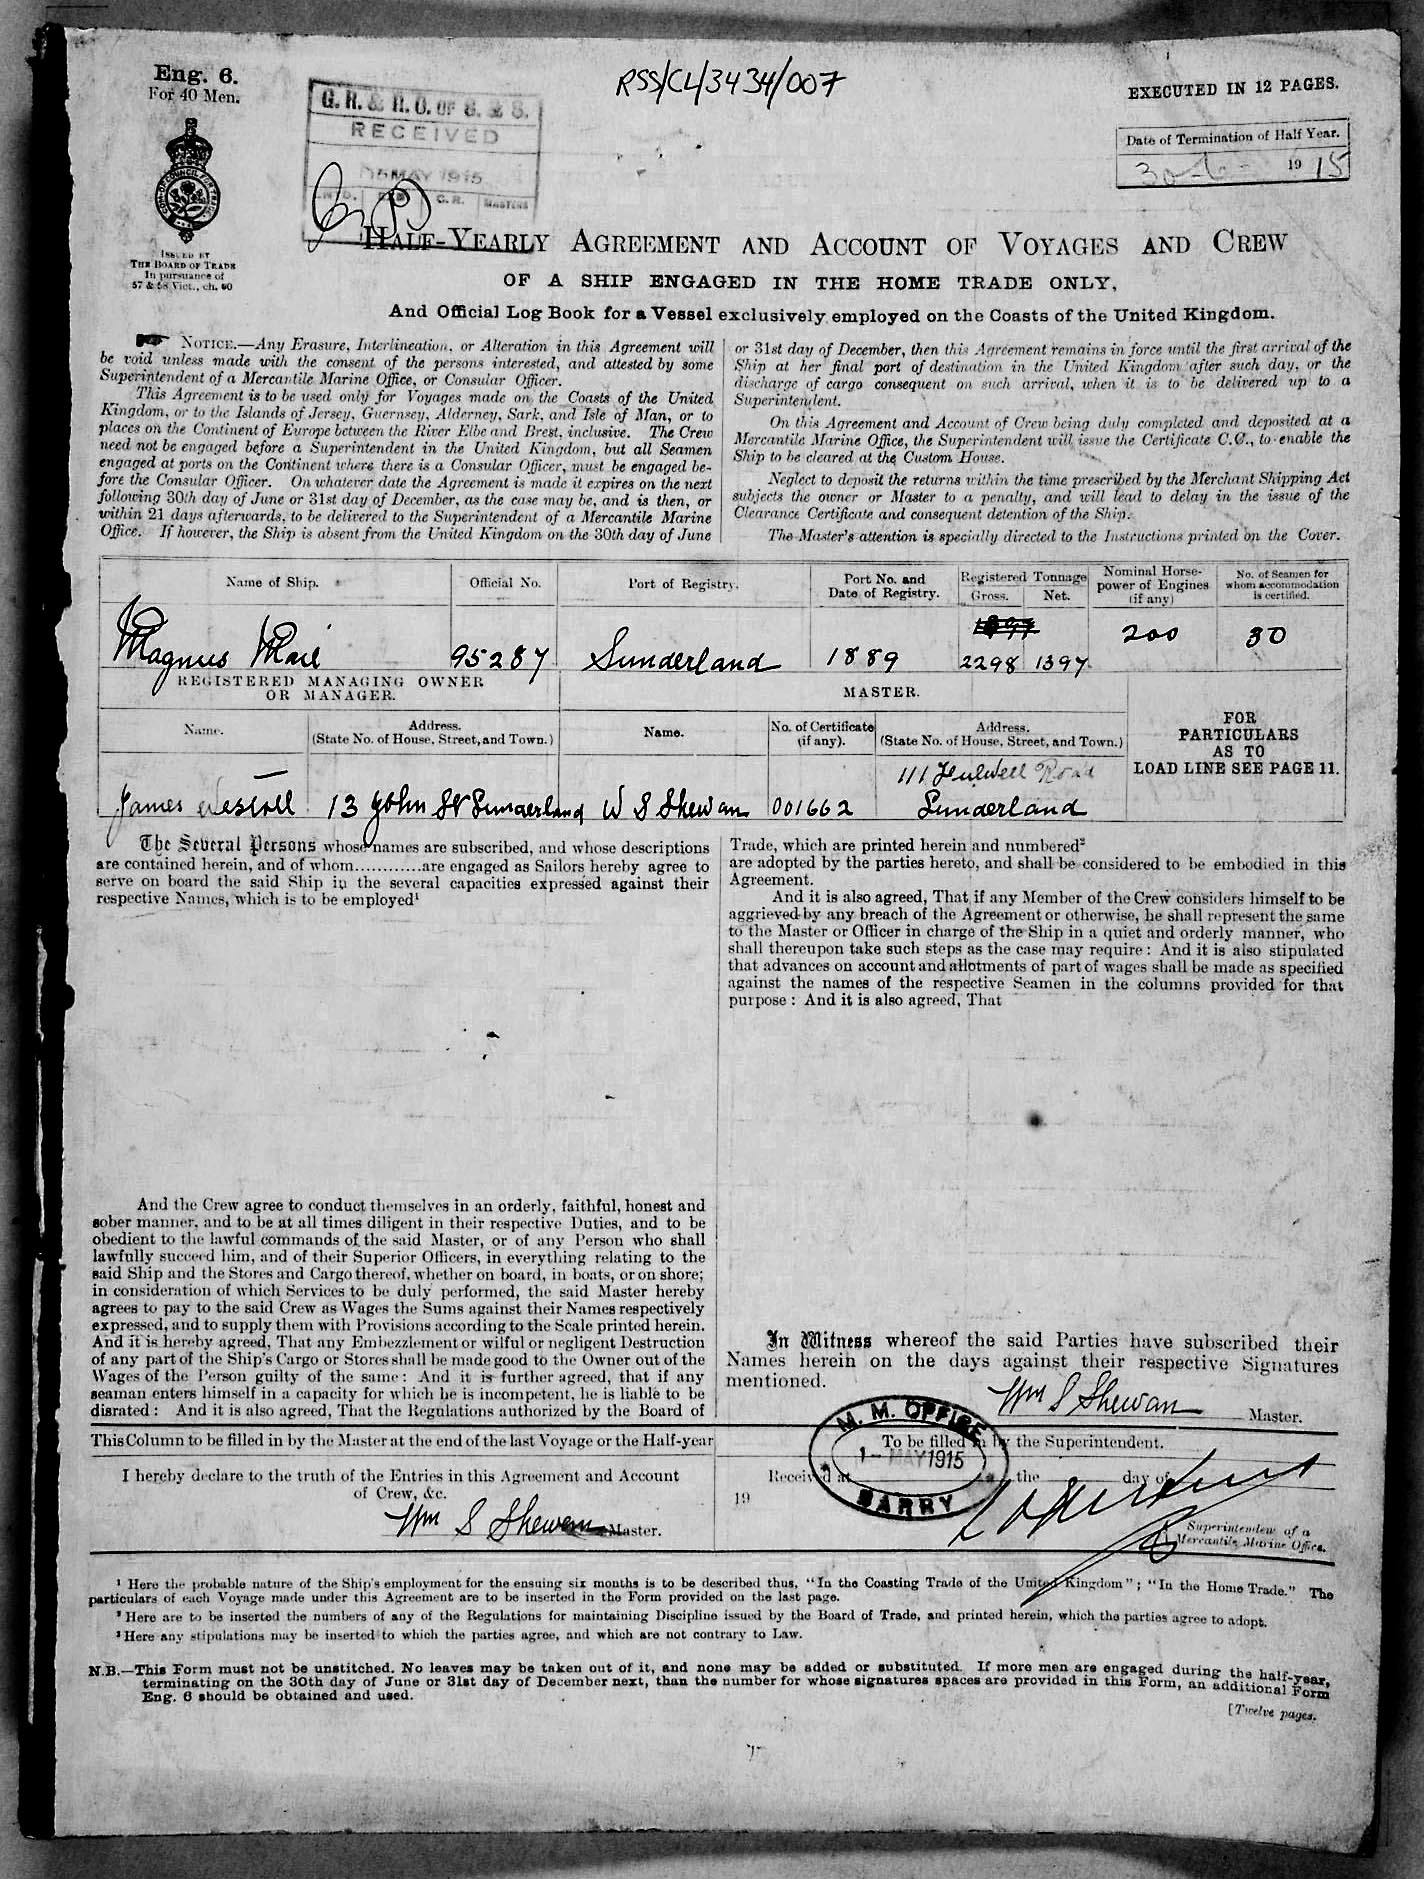 Eng. 6.
For 40 Men.
RSS/CL/3434/007
EXECUTED IN 12 PAGES.
G. R. & R. O. OF S. & S.
RECEIVED
MAY 1915
C. R. MASTERS
Date of Termination of Half Year.
30-6- 1915
ISSUED BY
THE BOARD OF TRADE
In pursuance of
57 & 58 Vict., ch. 60
HALF-YEARLY AGREEMENT AND ACCOUNT OF VOYAGES AND CREW
OF A SHIP ENGAGED IN THE HOME TRADE ONLY,
And Official Log Book for a Vessel exclusively employed on the Coasts of the United Kingdom.
NOTICE.—Any Erasure, Interlineation, or Alteration in this Agreement will
be void unless made with the consent of the persons interested, and attested by some
Superintendent of a Mercantile Marine Office, or Consular Officer.
This Agreement is to be used only for Voyages made on the Coasts of the United
Kingdom, or to the Islands of Jersey, Guernsey, Alderney, Sark, and Isle of Man, or to
places on the Continent of Europe between the River Elbe and Brest, inclusive. The Crew
need not be engaged before a Superintendent in the United Kingdom, but all Seamen
engaged at ports on the Continent where there is a Consular Officer, must be engaged be-
fore the Consular Officer. On whatever date the Agreement is made it expires on the next
following 30th day of June or 31st day of December, as the case may be, and is then, or
within 21 days afterwards, to be delivered to the Superintendent of a Mercantile Marine
Office. If however, the Ship is absent from the United Kingdom on the 30th day of June
or 31st day of December, then this Agreement remains in force until the first arrival of the
Ship at her final port of destination in the United Kingdom after such day, or the
discharge of cargo consequent on such arrival, when it is to be delivered up to a
Superintendent.
On this Agreement and Account of Crew being duly completed and deposited at a
Mercantile Marine Office, the Superintendent will issue the Certificate C.C., to enable the
Ship to be cleared at the Custom House.
Neglect to deposit the returns within the time prescribed by the Merchant Shipping Act
subjects the owner or Master to a penalty, and will lead to delay in the issue of the
Clearance Certificate and consequent detention of the Ship.
The Master's attention is specially directed to the Instructions printed on the Cover.
Name of Ship. Official No. Port of Registry. Port No. and Date of Registry. Registered Tonnage Gross. Net. Nominal Horse-power of Engines (if any) No. of Seamen for whom accommodation is certified.
Magnus Mail 95287 Sunderland 1889 2298 1397 200 30
REGISTERED MANAGING OWNER
OR MANAGER.
MASTER.
Name. Address. (State No. of House, Street, and Town.) Name. No. of Certificate (if any). Address. (State No. of House, Street, and Town.)
FOR
PARTICULARS
AS TO
LOAD LINE SEE PAGE 11.
James Westoll 13 John St Sunderland W S Shewan 001662 111 Fulwell Road
Sunderland
The Several Persons whose names are subscribed, and whose descriptions
are contained herein, and of whom............are engaged as Sailors hereby agree to
serve on board the said Ship in the several capacities expressed against their
respective Names, which is to be employed¹
And the Crew agree to conduct themselves in an orderly, faithful, honest and
sober manner, and to be at all times diligent in their respective Duties, and to be
obedient to the lawful commands of the said Master, or of any Person who shall
lawfully succeed him, and of their Superior Officers, in everything relating to the
said Ship and the Stores and Cargo thereof, whether on board, in boats, or on shore;
in consideration of which Services to be duly performed, the said Master hereby
agrees to pay to the said Crew as Wages the Sums against their Names respectively
expressed, and to supply them with Provisions according to the Scale printed herein.
And it is hereby agreed, That any Embezzlement or wilful or negligent Destruction
of any part of the Ship's Cargo or Stores shall be made good to the Owner out of the
Wages of the Person guilty of the same: And it is further agreed, that if any
seaman enters himself in a capacity for which he is incompetent, he is liable to be
disrated: And it is also agreed, That the Regulations authorized by the Board of
Trade, which are printed herein and numbered²
are adopted by the parties hereto, and shall be considered to be embodied in this
Agreement.
And it is also agreed, That if any Member of the Crew considers himself to be
aggrieved by any breach of the Agreement or otherwise, he shall represent the same
to the Master or Officer in charge of the Ship in a quiet and orderly manner, who
shall thereupon take such steps as the case may require: And it is also stipulated
that advances on account and allotments of part of wages shall be made as specified
against the names of the respective Seamen in the columns provided for that
purpose: And it is also agreed, That
In Witness whereof the said Parties have subscribed their
Names herein on the days against their respective Signatures
mentioned.
Wm S Shewan Master.
This Column to be filled in by the Master at the end of the last Voyage or the Half-year
I hereby declare to the truth of the Entries in this Agreement and Account
of Crew, &c.
Wm S Shewan Master.
To be filled in by the Superintendent.
Received at the day of
19
M. M. OFFICE
1- MAY 1915
BARRY
Superintendent of a
Mercantile Marine Office.
¹ Here the probable nature of the Ship's employment for the ensuing six months is to be described thus, "In the Coasting Trade of the United Kingdom"; "In the Home Trade." The
particulars of each Voyage made under this Agreement are to be inserted in the Form provided on the last page.
² Here are to be inserted the numbers of any of the Regulations for maintaining Discipline issued by the Board of Trade, and printed herein, which the parties agree to adopt.
³ Here any stipulations may be inserted to which the parties agree, and which are not contrary to Law.
N.B.—This Form must not be unstitched. No leaves may be taken out of it, and none may be added or substituted. If more men are engaged during the half-year,
terminating on the 30th day of June or 31st day of December next, than the number for whose signatures spaces are provided in this Form, an additional Form
Eng. 6 should be obtained and used.
[Twelve pages.